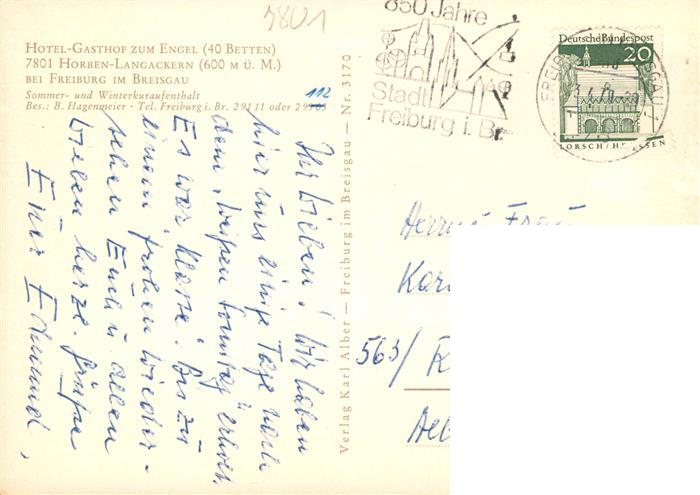 3801
HOTEL-GASTHOF ZUM ENGEL (40 BETTEN)
7801 HORBEN-LANGACKERN (600 M Ü. M.)
BEI FREIBURG IM BREISGAU
Sommer- und Winterkuraufenthalt
Bes.: B. Hagenmeier · Tel. Freiburg i. Br. 2 91 11 oder 2 99 03
112
Ihr Lieben! Wir haben
hier uns einige Tage nach
dem „Weißen Sonntag“ erholt.
Es war Klasse! Bis zu
einem frohen Wieder-
sehen Euch u. allen
Lieben herzl. Grüße
Euer Edmund,
Verlag Karl Alber — Freiburg im Breisgau — Nr. 3170
850 Jahre
Stadt
Freiburg i. Br.
Deutsche Bundespost
20
LORSCH/HESSEN
Herrn u. Frau
Karl
563/